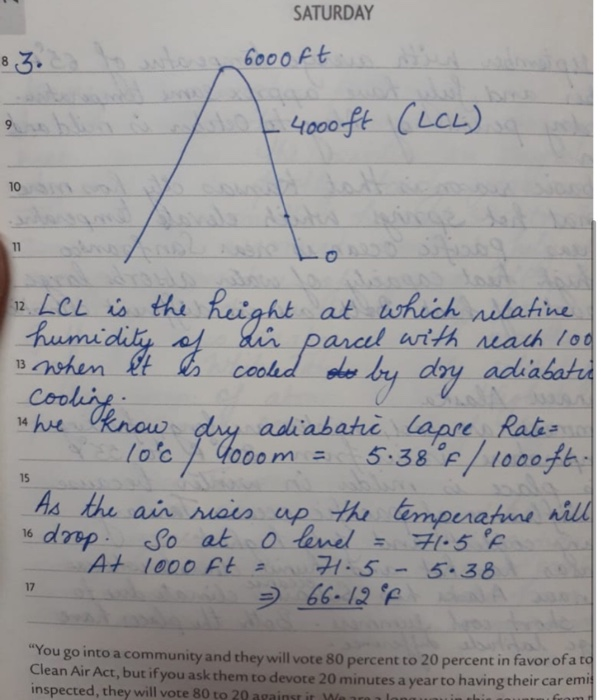 SATURDAY
8 3.
6000ft
9
4000ft (LCL)
10
11
0
12 LCL is the height at which relative
humidity of air parcel with reach 100
13 when it is cooled by dry adiabatic
cooling.
14 We know dry adiabatic lapse Rate=
10°C / 1000m = 5.38°F / 1000ft.
15
As the air rises up the temperature will
16 drop. So at 0 level = 71.5°F
At 1000 Ft = 71.5 - 5.38
17 ⇒ 66.12°F
"You go into a community and they will vote 80 percent to 20 percent in favor of a to
Clean Air Act, but if you ask them to devote 20 minutes a year to having their car emis
inspected, they will vote 80 to 20 against it. We are a long way in this country from